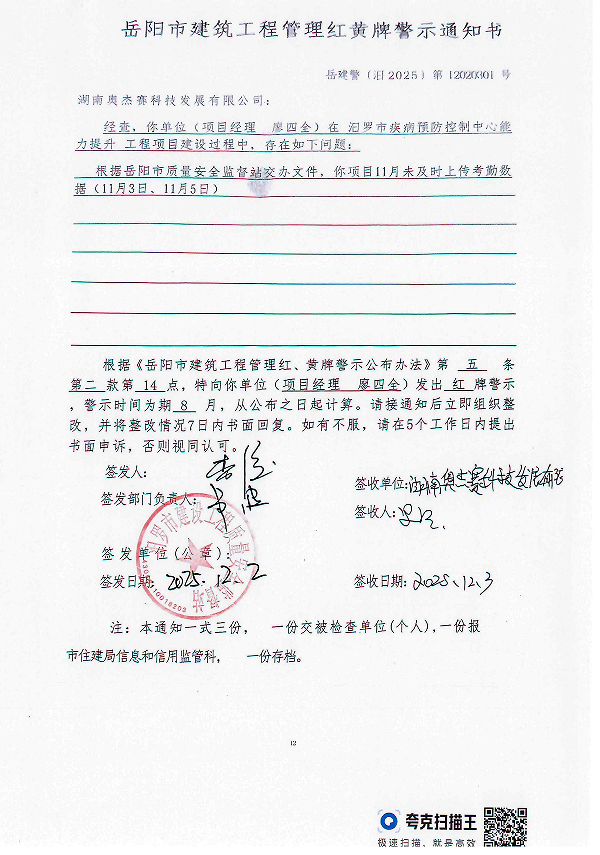 岳阳市建筑工程管理红黄牌警示通知书
岳建警（汨2025）第 12020301 号
湖南奥杰赛科技发展有限公司：
经查，你单位（项目经理 廖四全）在 汨罗市疾病预防控制中心能
力提升 工程项目建设过程中，存在如下问题：
根据岳阳市质量安全监督站交办文件，你项目11月未及时上传考勤数
据（11月3日、11月5日）
根据《岳阳市建筑工程管理红、黄牌警示公布办法》第 五 条
第二 款第 14 点，特向你单位（项目经理 廖四全）发出 红 牌警示
，警示时间为期 8 月，从公布之日起计算。请接通知后立即组织整
改，并将整改情况7日内书面回复。如有不服，请在5个工作日内提出
书面申诉，否则视同认可。
签发人：
签收单位：湖南奥杰赛科技发展有限
签发部门负责人：
签收人：
签发单位（公章）：
汨罗市建设工程质量安全监督站
签发日期：2025.12.2
签收日期：2025.12.3
注：本通知一式三份， 一份交被检查单位(个人),一份报
市住建局信息和信用监管科， 一份存档。
12
夸克扫描王
极速扫描，就是高效